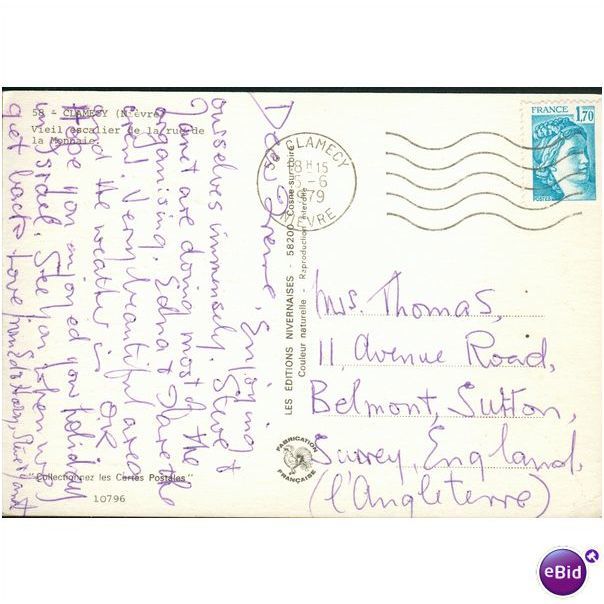 58 - CLAMECY (Nièvre)
Vieil escalier de la rue de
la Monnaie
Dear Irene, Enjoying
ourselves immensely. Steve &
Janet are doing most of the
organising. Edna & I are the
crew. Very beautiful area
and the weather is OK
Hope you enjoyed your holiday
in Israel. See you when we
get back. Love from
"Collectionnez les Cartes Postales"
10796
LES EDITIONS NIVERNAISES - 58200 Cosne-sur-Loire
Couleur naturelle - Reproduction interdite
FABRICATION
FRANÇAISE
58 CLAMECY
8H15
-6
1979
NIEVRE
FRANCE
1,70
POSTES
Mrs. Thomas,
11, Avenue Road,
Belmont, Sutton,
Surrey, England.
(l'Angleterre)
eBid